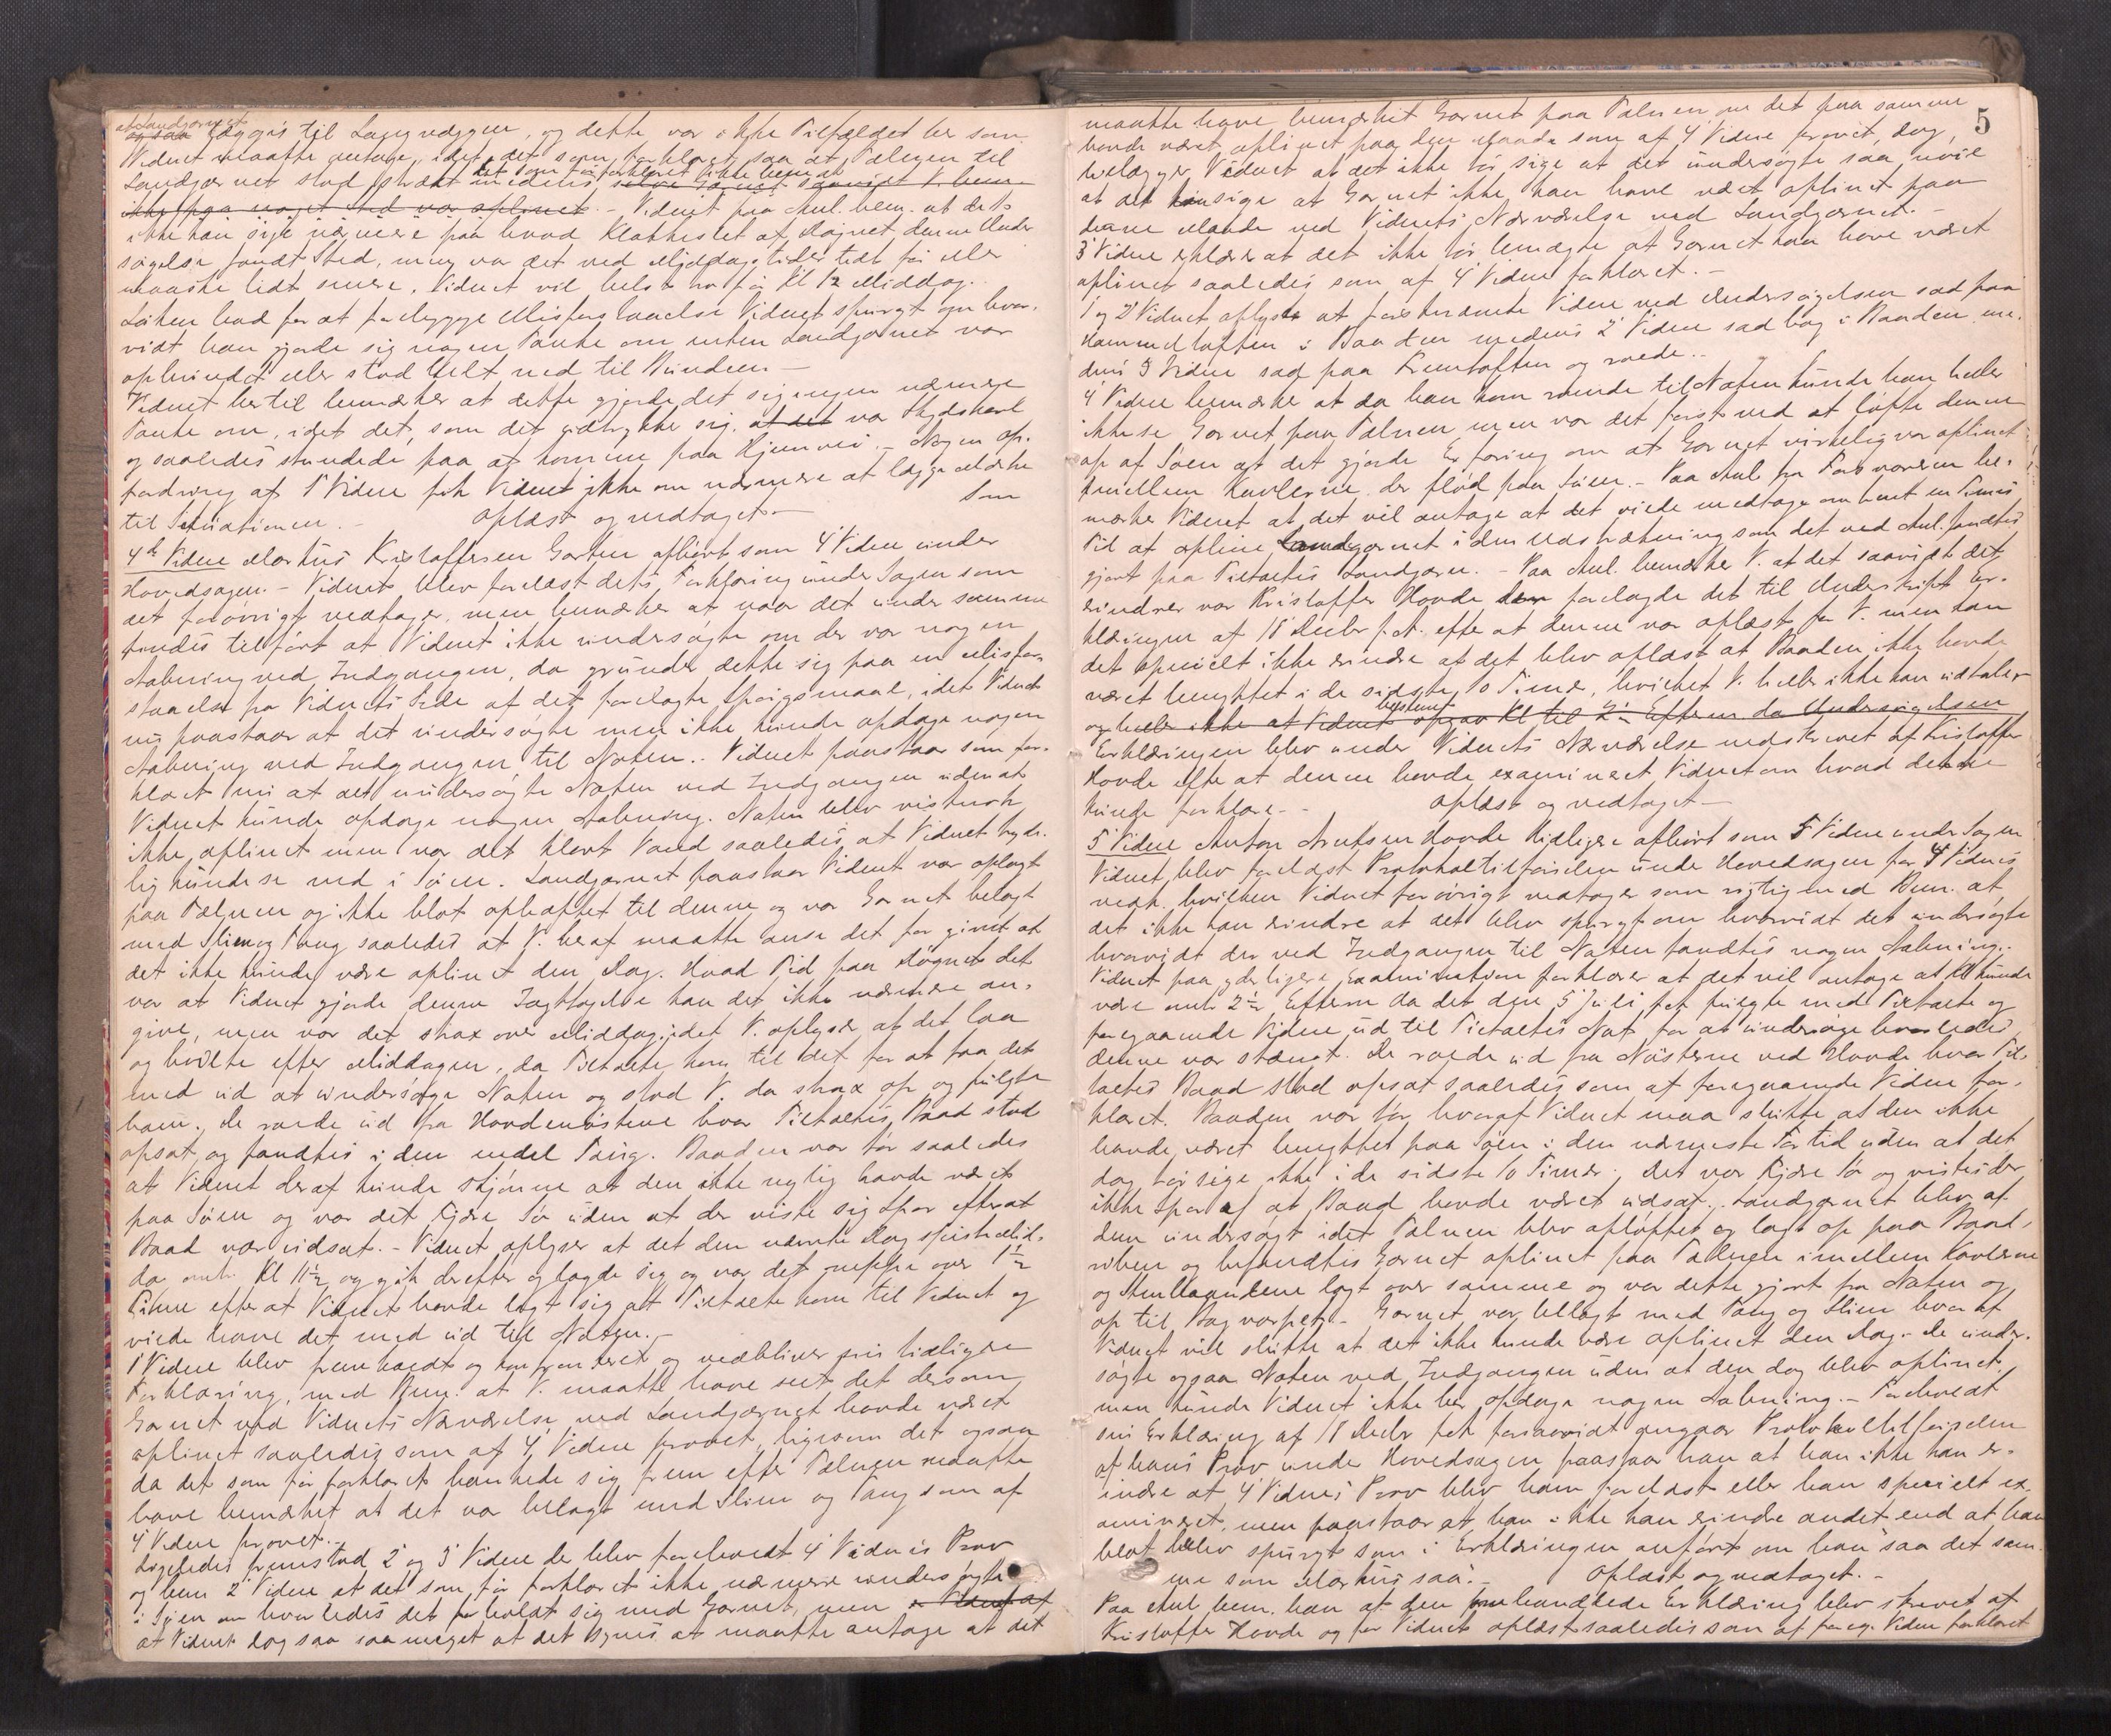 at Landgarnet
og saa lægges til Lagnvæggen, og dette var ikke Tilfældet her som
Vidnet maatte antage, idet det som forklaret saa at Tælnen til
Landgarnet stod strakt medens det som før forklaret ikke bem. at
selve Garnet saavidt V. bem.
ikke paa noget Sted var oplinet. - Vidnet paa Anl. bem. at det
ikke kan sige nærmere paa hvad Klokkeslet af Døgnet denne Under
søgelse fandt Sted, men var det ved Middagstider lidt før eller
maaske lidt senere. Vidnet vil helst tro før Kl 12 Middag.
bad for at forebygge Misforstaaelse Vidnet spurgt om hvor-
vidt han gjorde sig nogen Tanke om enten Landgarnet var
opbundet eller stod helt ned til Bunden. -
Vidnet hertil bemærker at dette gjorde det sig ingen nærmere
Tanke om, idet det, som det udtrykker sig, at det var Skydskarl
og saaledes stundede paa at komme paa Hjemvei. - Nogen Op-
fordring af 1 Vidne fik Vidnet ikke om nærmere at lægge Mærke
til Situationen. - Oplæst og vedtaget. - Som
4de Vidne Markus Kristoffersen afhørt som 4 Vidne under
Hovedsagen. - Vidnet blev forelæst dets Forklaring under Sagen som
det forøvrigt vedtager, men bemærker at naar det under samme
findes tilført at Vidnet ikke undersøgte om der var nogen
Aabning ved Indgangen, da grunder dette sig paa en Misfor-
staaelse fra Vidnets Side af det forelagte Spørgsmaal, idet Vidnet
nu paastaar at det undersøgte men ikke kunde opdage nogen
Aabning ved Indgangen til Noten. - Vidnet paastaar som for-
klaret nu at det undersøgte Noten ved Indgangen uden at
Vidnet kunde opdage nogen Aabning. Noten blev vistnok
ikke oplinet men var det klart Vand saaledes at Vidnet tyde-
lig kunde se ned i Søen. Landgarnet paastaar Vidnet var oplagt
paa Tælnen og ikke blot opheftet til denne og var Garnet belagt
med Slim og Tang saaledes at V. heraf maatte anse det for givet at
det ikke kunde være oplinet den Dag. Hvad Tid paa Døgnet det
var at Vidnet gjorde denne Iagttagelse kan det ikke nærmere an-
give, men var det strax over Middag, idet V. oplyser at det laa
og hvilte efter Middagen, da Tiltalte kom til det for at faa det
med ud at undersøge Noten og stod V. da strax op og fulgte
ham. De roede ud fra Hovdenøstene hvor Tiltaltes Baad stod
opsat og fandtes i den endel Tang. Baaden var tør saaledes
at Vidnet deraf kunde skjønne at den ikke nylig havde været
paa Søen og var det Fjære Sø uden at der viste sig Spor efter at
Baad var udsat. - Vidnet oplyser at det den nævnte Dag spiste Mid-
da omtr. Kl 11½ og gik derefter og lagde sig og var det neppe over 1½
Time efter at Vidnet havde lagt sig at Tiltalte kom til Vidnet og
vilde have det med ud til Noten. -
1 Vidne blev fremkaldt og konfronteret og vedbliver sin tidligere
Forklaring, med Bem. at V. maatte have seet det dersom
Garnet ved Vidnets Nærværelse ved Landgarnet havde været
oplinet saaledes som af 4 Vidne provet, ligesom det ogsaa
da det som før forklaret hankede sig frem efter Tælnen maatte
have bemærket at det var belagt med Slim og Tang som af
4 Vidne provet. -
Ligeledes fremstod 2 og 3 Vidne der blev foreholdt 4 Vidnes Prov
og bem. 2 Vidne at det som før forklaret ikke nærmere undersøgte
i Søen om hvorledes det forholdt sig med Garnet, men
at Vidnet dog saa saameget at det synes at maatte antage at det
5
maatte have bemærket Garnet paa Tælnen om det paa samme
havde været oplinet paa den Maade som af 4 Vidne provet, dog
Vidnet at det ikke tør sige at det undersøgte saa nøie
at det kan sige at Garnet ikke kan have været oplinet paa
denne Maade ved Vidnets Nærværelse ved Landgarnet. -
3 Vidne erklærer at det ikke tør benægte at Garnet kan have været
oplinet saaledes som af 4 Vidne forklaret. -
1 og 2 Vidnet oplyste at førstnævnte Vidne ved Undersøgelsen sad paa
i Baaden medens 2 Vidne sad bag i Baaden me-
dens 3 Vidne sad paa Fremtoften og roede. -
4 Vidne bemærker at da han kom roende til Noten kunde han heller
ikke se Garnet paa Tælnen, men var det først ved at løfte denne
op af Søen at det gjorde Erfaring om at Garnet virkelig var oplinet
imellem Kavlerne der flød paa Søen. - Paa Anl. fra Forsvareren be-
mærker Vidnet at det vil antage at det vilde medtage omtrent en Times
Tid at opline Landgarnet i den Udstrækning som det ved Anl. fandtes
gjort paa Tiltaltes Landgarn. - Paa Anl. bemærker V. at det saavidt det
erindrer var Kristoffer Hovde der forelagde det til Underskrift Er-
klæringen af 18 Decbr f. A. efter at denne var oplæst for V. men kan
det specielt ikke erindre at det blev oplæst at Baaden ikke havde
været benyttet i de sidste 10 Timer, hvilket V. heller ikke kan udtale
bestemt
og heller ikke at Vidnet opgav Kl til 2½ Efterm da Undersøgelsen
Erklæringen blev under Vidnets Nærværelse nedskrevet af Kristoffer
Hovde efter at denne havde examineret Vidnet om hvad dette
kunde forklare. - Oplæst og vedtaget. -
5 Vidne Anton Hovde tidligere afhørt som 5 Vidne under Sagen
Vidnet blev forelæst Protokoltilførslen under Hovedsagen for 4 Vidnes
vedk. hvilken Vidnet forøvrigt vedtager som rigtig med Bem. at
det ikke kan erindre at det blev spurgt om hvorvidt det undersøgte
hvorvidt der ved Indgangen til Noten fandtes nogen Aabning. -
Vidnet paa yderligere Examination forklarer at det vil antage at Kl kunde
være omtr. 2½ Efterm da det den 5 Juli fulgte med Tiltalte og
foregaaende Vidne ud til Tiltaltes Not for at undersøge hvorledes
denne var stængt. De roede ud fra Nøsterne ved Hovde hvor Til-
taltes Baad stod opsat saaledes som af foregaaende Vidne for-
klaret. Baaden var tør, hvoraf Vidnet maa slutte at den ikke
havde været benyttet paa Søen i den nærmeste Fortid uden at det
dog tør sige ikke i de sidste 10 Timer. Det var Fjære Sø og vistes der
ikke Spor af at Baad havde været udsat. - Landgarnet blev af
dem undersøgt idet Tælnen blev opløftet og lagt op paa Baad-
ribben og befandtes Garnet oplinet paa Tælnen imellem Kavlerne
og lagt over samme og var dette gjort fra Noten og
op til Bagvarpet. - Garnet var belagt med Tang og Slim hvoraf
Vidnet vil slutte at det ikke kunde være oplinet den Dag. De under-
søgte ogsaa Noten ved Indgangen uden at den dog blev oplinet,
men kunde Vidnet ikke her opdage nogen Aabning. - Foreholdt
sin Erklæring af 18 Decbr forsaavidt angaar Protokoltilførselen
af hans Prov under Hovedsagen paastaar han at han ikke kan er-
indre at 4 Vidnes Prov blev ham forelæst eller han specielt ex-
amineret, men paastaar at han ikke kan erindre andet end at han
blot blev spurgt som i Erklæringen anført om han saa det sam-
me som Markus saa. - Oplæst og vedtaget. -
Paa Anl. bem. han at den omhandlede Erklæring blev skrevet af
Kristoffer Hovde og for Vidnet oplæst saaledes som af foreg. Vidne forklaret